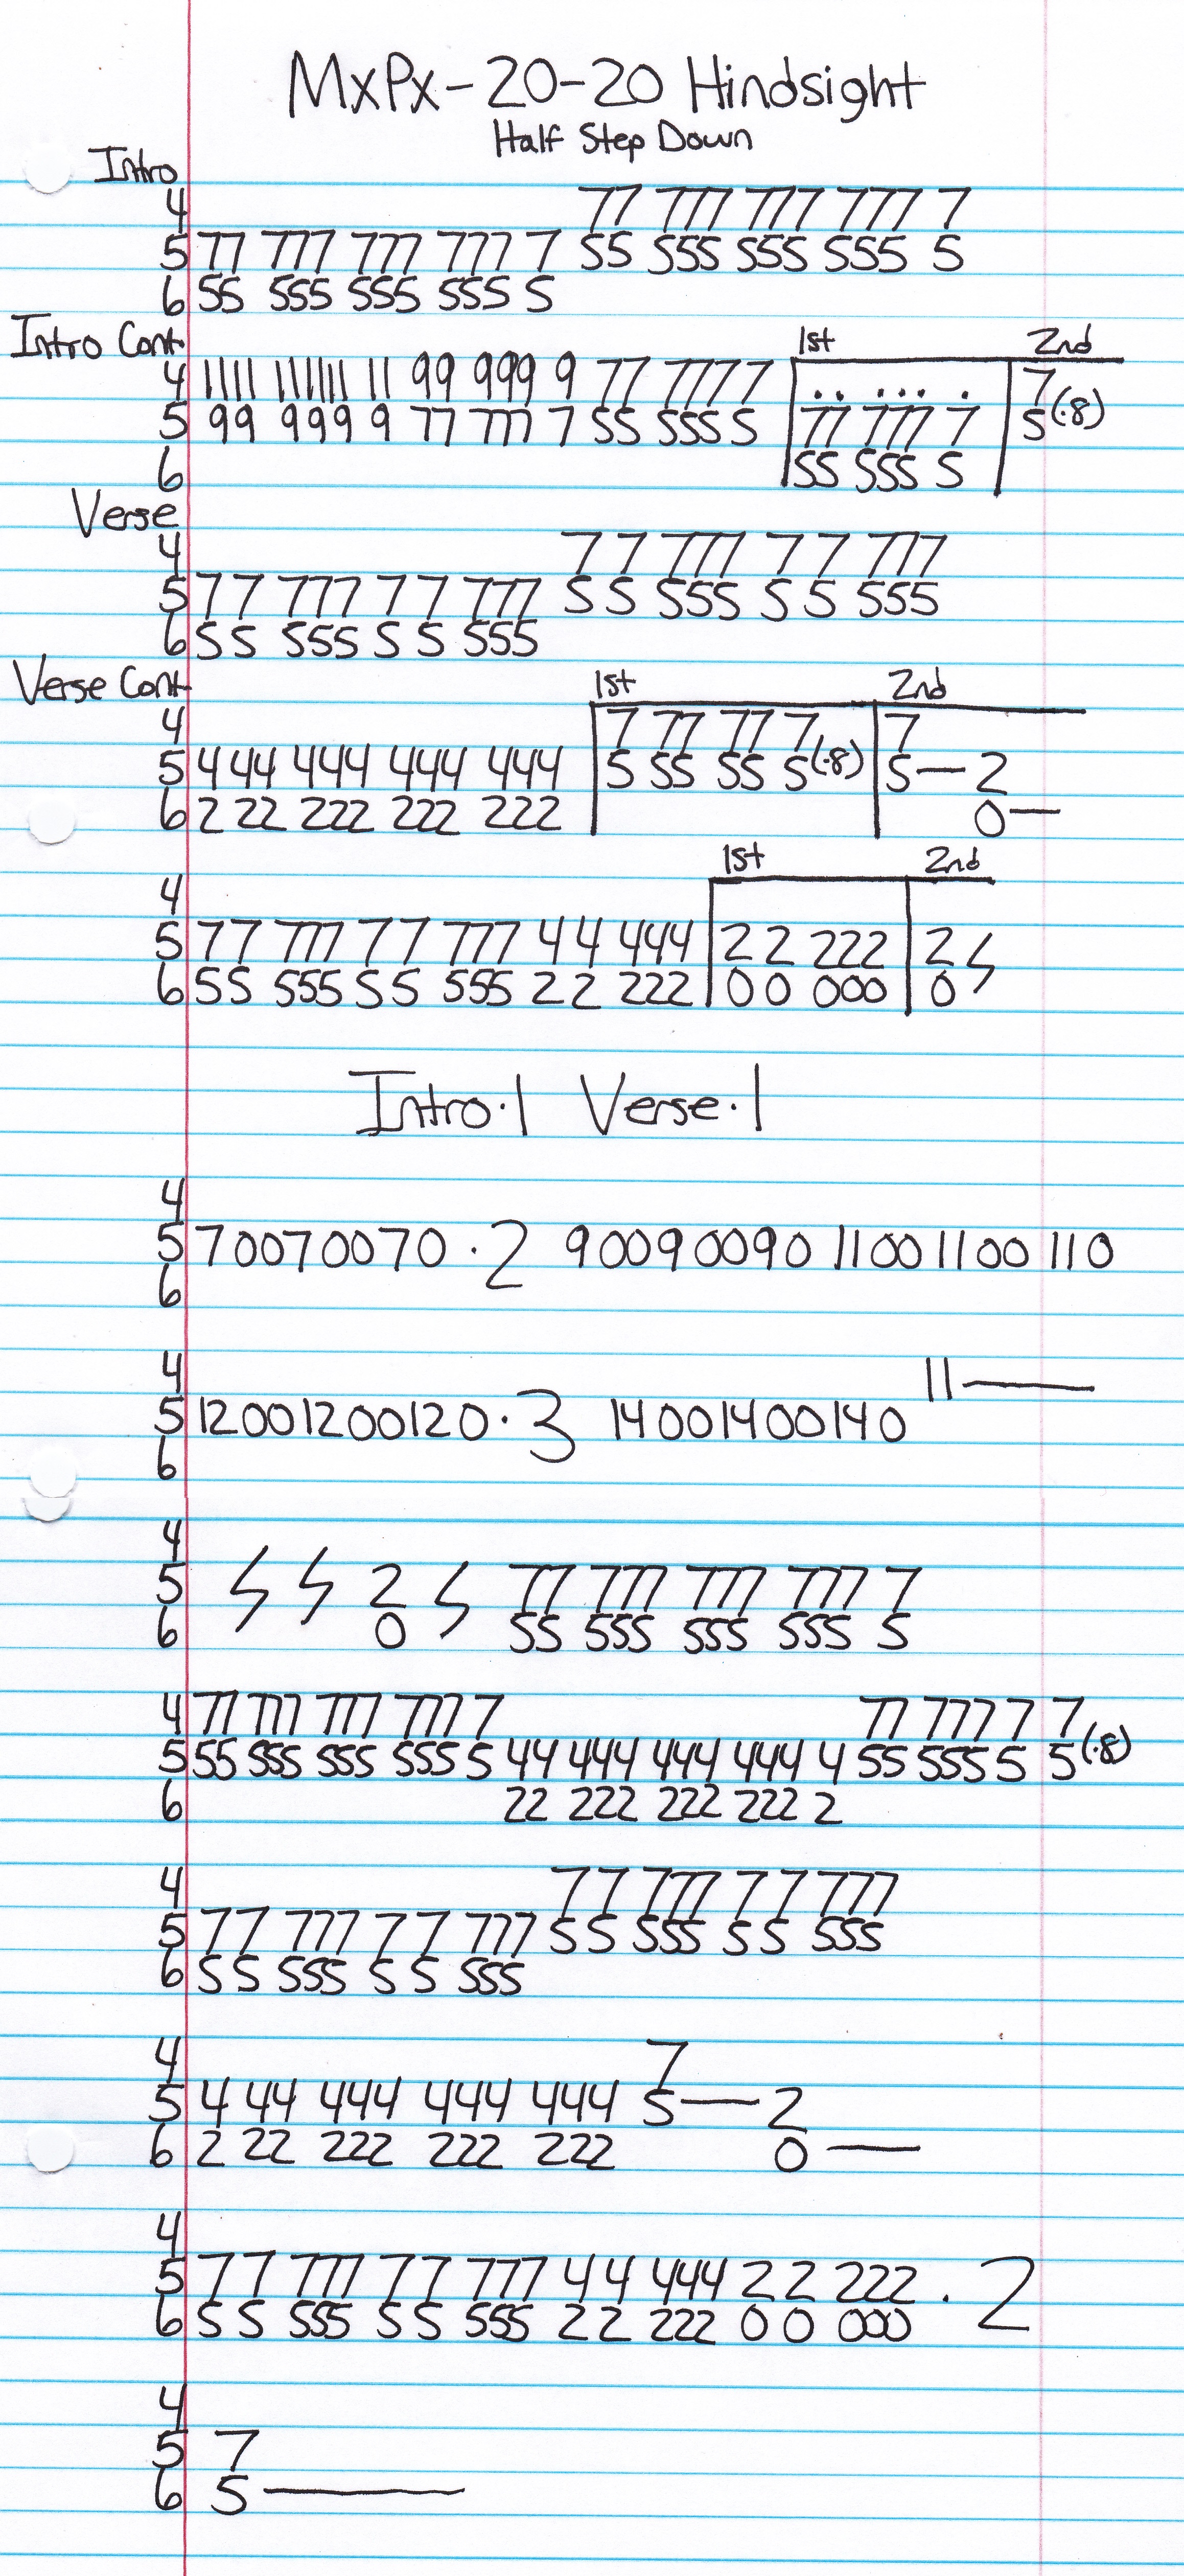 MxPx-20-20 Hindsight
Half Step Down
Intro
4 77 777 777 777 7
5 77 777 777 777 7 55 555 555 555 5
6 55 555 555 555 5
Intro Cont. 1st 2nd
4 1111 111111 11 99 999 9 77 777 7 7
5 99 999 9 77 777 7 55 555 5 77 777 7 5(.8)
6 55 555 5
Verse
4 7 7 777 7 7 777
5 7 7 777 7 7 777 5 5 555 5 5 555
6 5 5 555 5 5 555
Verse Cont. 1st 2nd
4 7 77 77 7 7
5 4 44 444 444 444 5 55 55 5(.8) 5— 2
6 2 22 222 222 222 0—
1st 2nd
4
5 7 7 777 7 7 777 4 4 444 2 2 222 2
6 5 5 555 5 5 555 2 2 222 0 0 000 0
Intro.1 Verse.1
4
5 70070070 .2 90090090 1100 1100 110
6
4 11—
5 12001200120.3 14001400140
6
4
5 2 77 777 777 777 7
6 0 55 555 555 555 5
4 77 777 777 777 7 77 777 7 7
5 55 555 555 555 5 44 444 444 444 4 55 555 5 5(.8)
6 22 222 222 222 2
4 7 7 777 7 7 777
5 7 7 777 7 7 777 5 5 555 5 5 555
6 5 5 555 5 5 555
4 7
5 4 44 444 444 444 5— 2
6 2 22 222 222 222 0—
4
5 7 7 777 7 7 777 4 4 444 2 2 222 .2
6 5 5 555 5 5 555 2 2 222 0 0 000
4
5 7
6 5—